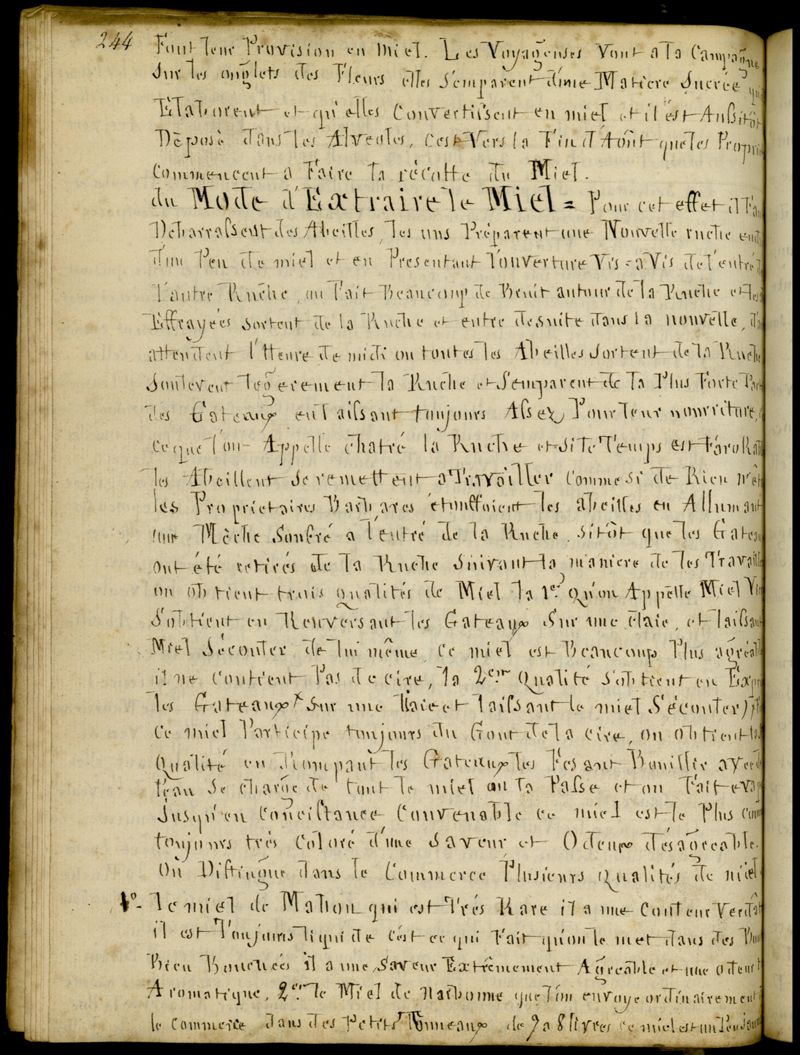 244
Font leur Provision en miel. Les Voyageuses Vont a la Campagne
Sur les onglets des Fleurs elles S'emparent d'une Matiere Sucrée qu'
Elaborent et qu'elles Convertissent en miel et il est Aussitôt
Déposé dans les Alvéoles, C'est Vers la fin d'Août que les Propri
Commencent a Faire la récolte du Miel.
du Mode d'Extraire le Miel = Pour cet effet il Fau
Debarrassent des Abeilles, les uns Préparent une Nouvelle ruche end
d'un Peu de miel et en Presentant l'ouverture Vis-a-Vis de l'entré
l'autre Ruche, on Fait Beaucoup de Bruit autour de la Ruche et les
Effrayées Sortent de la Ruche et entre desuite dans la nouvelle, d'a
attendent l'Heure de midi ou toutes les Abeilles Sortent de la Ruche
Soulevent legerement la Ruche et S'emparent de la Plus Forte Par
des Gateaux en Laissant toujours Assez Pour leur nourriture,
ce que l'on Appelle chatré la Ruche et Si le Temps est favorab
les Abeillent Se remettent a Travailler Comme Si de Rien n'et
les Proprietaires Barbares étouffoient les abeilles en Allumant
une Mèche Soufré a l'entré de la Ruche, Sitôt que les Gateau
ont été retirés de la Ruche Suivant la maniere de les Travaill
on obtient trois qualités de Miel la 1ere qu'on Appelle Miel Vie
S'obtient en Renversant les Gateaux Sur une claie, et laissan
Miel Sécouler de lui même, ce miel est Beaucoup Plus agréab
il ne Contient Pas de cire, la 2eme Qualité S'obtient en Exp
les Gateaux Sur une claie et laissant le miel S'écouler,
Ce miel Participe toujours du Gout de la cire, on obtient la
Qualité en Rompant les Gateaux les Fesant Bouillir avec
l'eau Se charge de tout le miel on la Passe et on Fait eva
Jusqu'en Concistance Convenable ce miel est le Plus Com
toujours très Coloré d'une Saveur et Odeur désagreable.
On Distingue dans le Commerce Plusieurs Qualités de miel
1o- le miel de Mahon qui est Très Rare il a une Couleur Verdat
il est Toujours liquide c'est ce qui Fait qu'on le met dans des
Bien Bouchées il a une Saveur Extrêmement Agreable et une odeur
Aromatique, 2e le Miel de Narbonne que l'on envoye ordinairement
le Commerce dans des Petits Tonneaux de 7 a 8 livres ce miel est un Peu